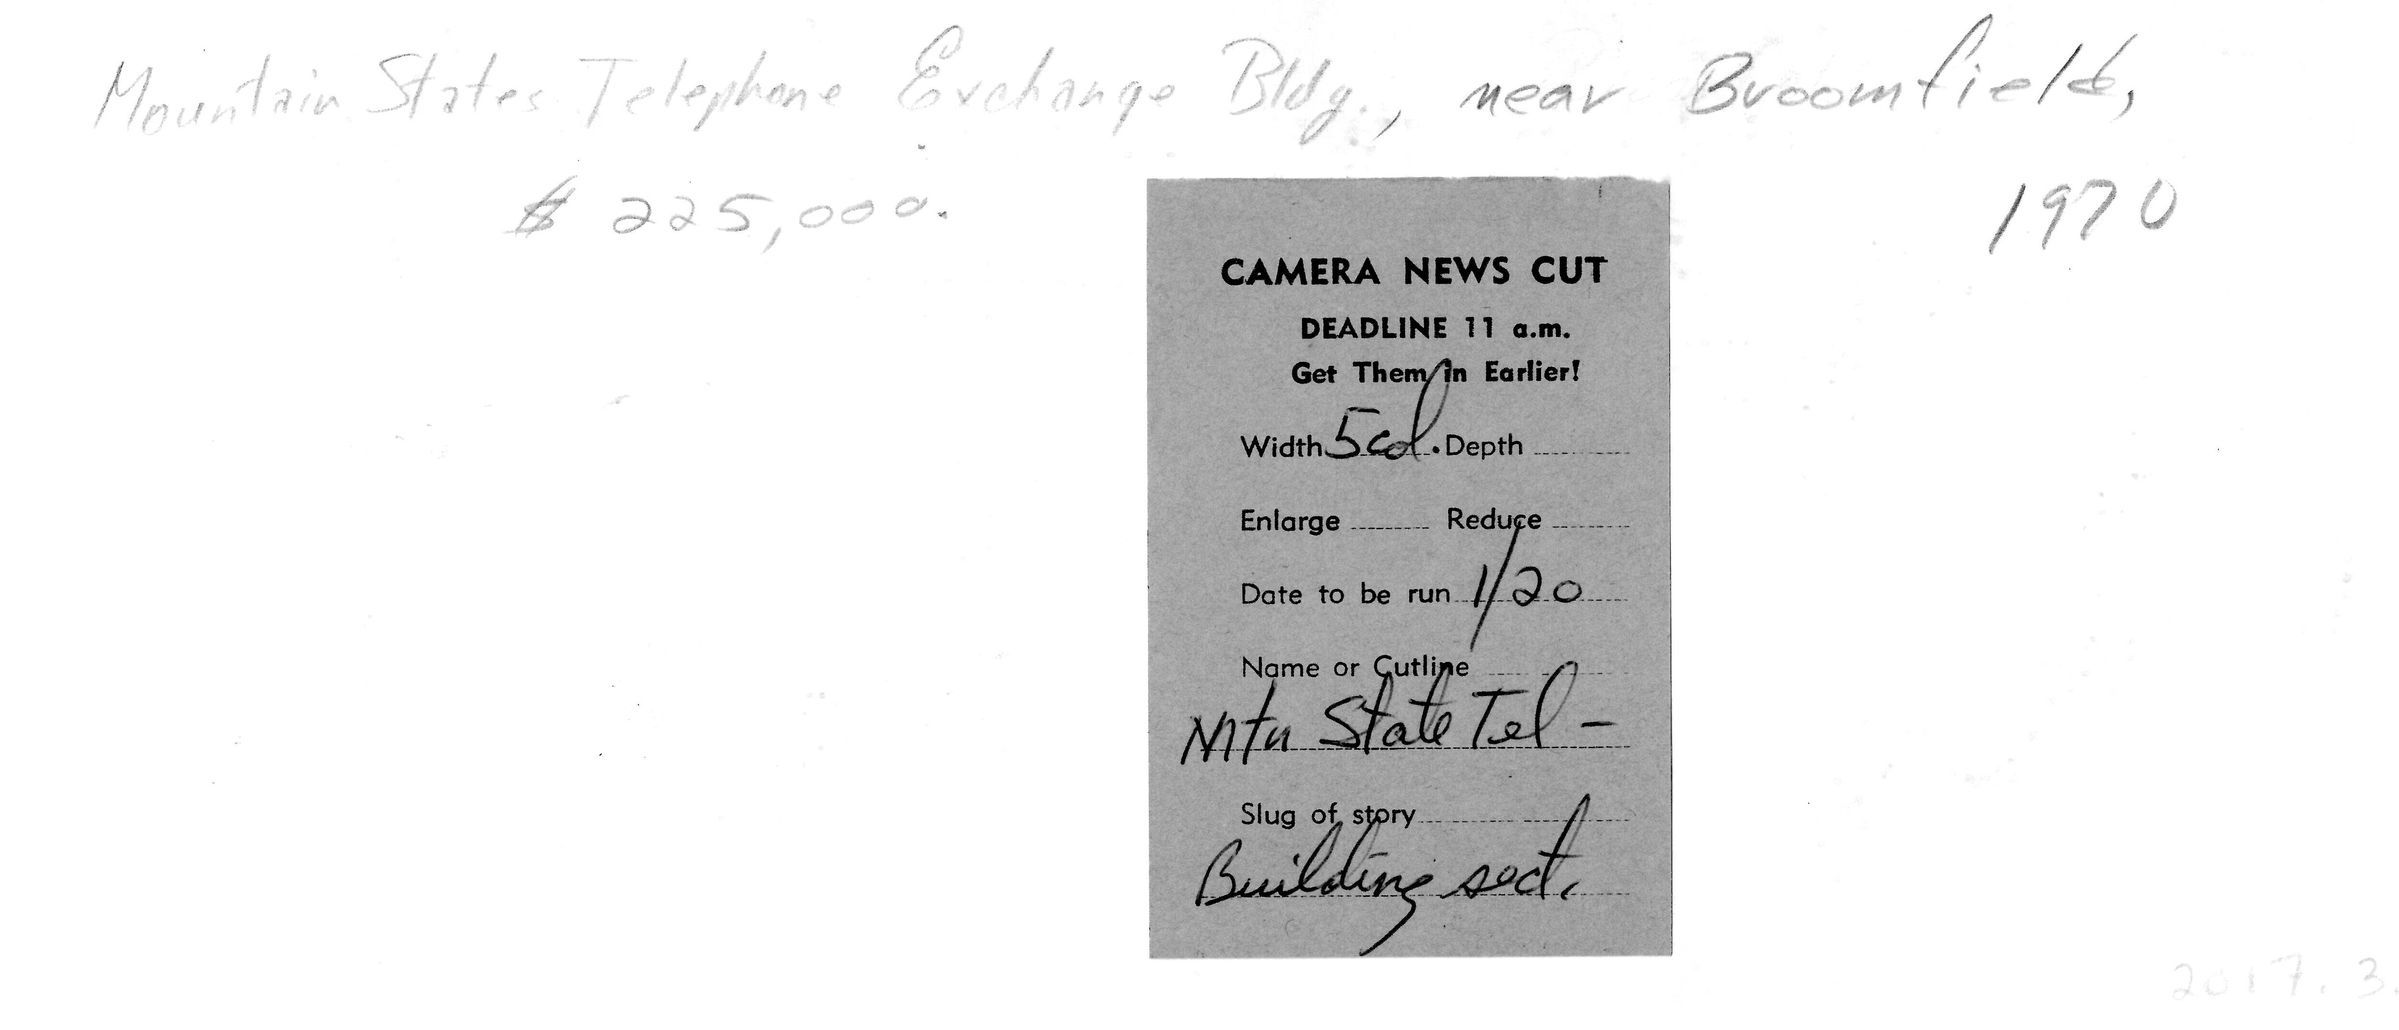 Mountain States Telephone Exchange Bldg., near Broomfield,
$ 225,000.
1970
CAMERA NEWS CUT
DEADLINE 11 a.m.
Get Them In Earlier!
Width 5 col. Depth
Enlarge Reduce
Date to be run 1/20
Name or Cutline
Mtn State Tel -
Slug of story
Building sect.
2017.3.